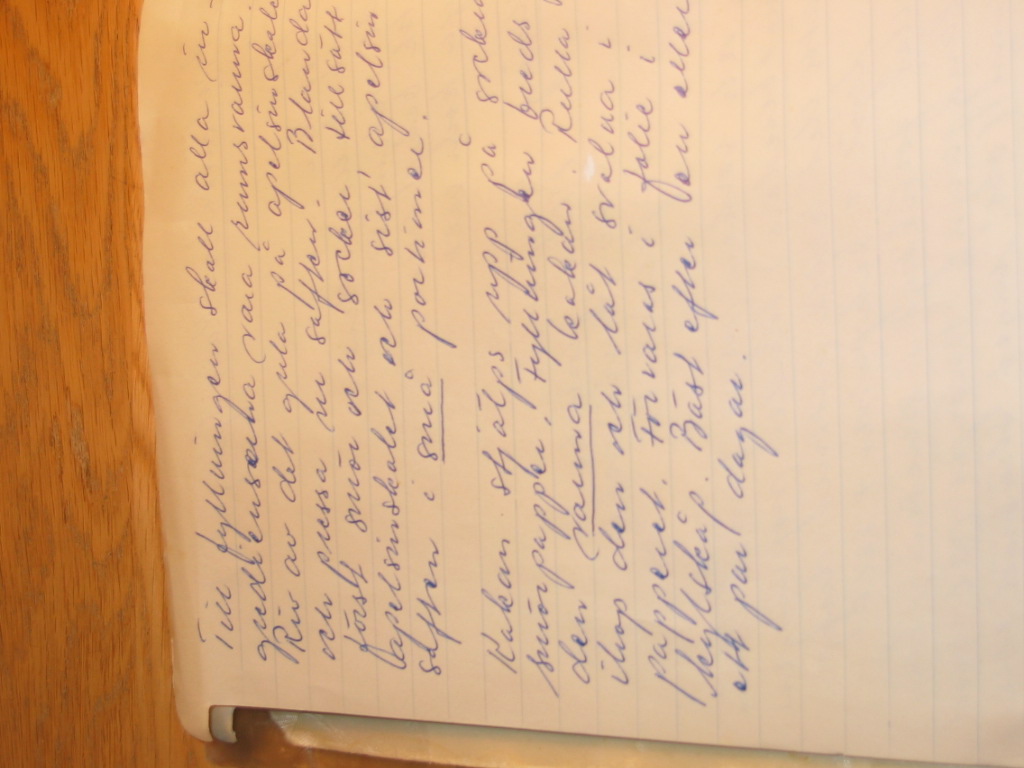 Till fyllningen skall alla in-
gredienserna vara rumsvarma.
Riv av det gula på apelsinskalet
och pressa ur saften. Blanda
först smör och socker tillsätt
apelsinskalet och sist apelsin
saften i små portioner.
Kakan stjälps upp på socker
smörpapper. Fyllningen breds
den varma kakan. Rulla
ihop den och låt svalna i
pappret. Förvaras i folie i
kylskåp. Bäst efter en eller
ett par dagar.